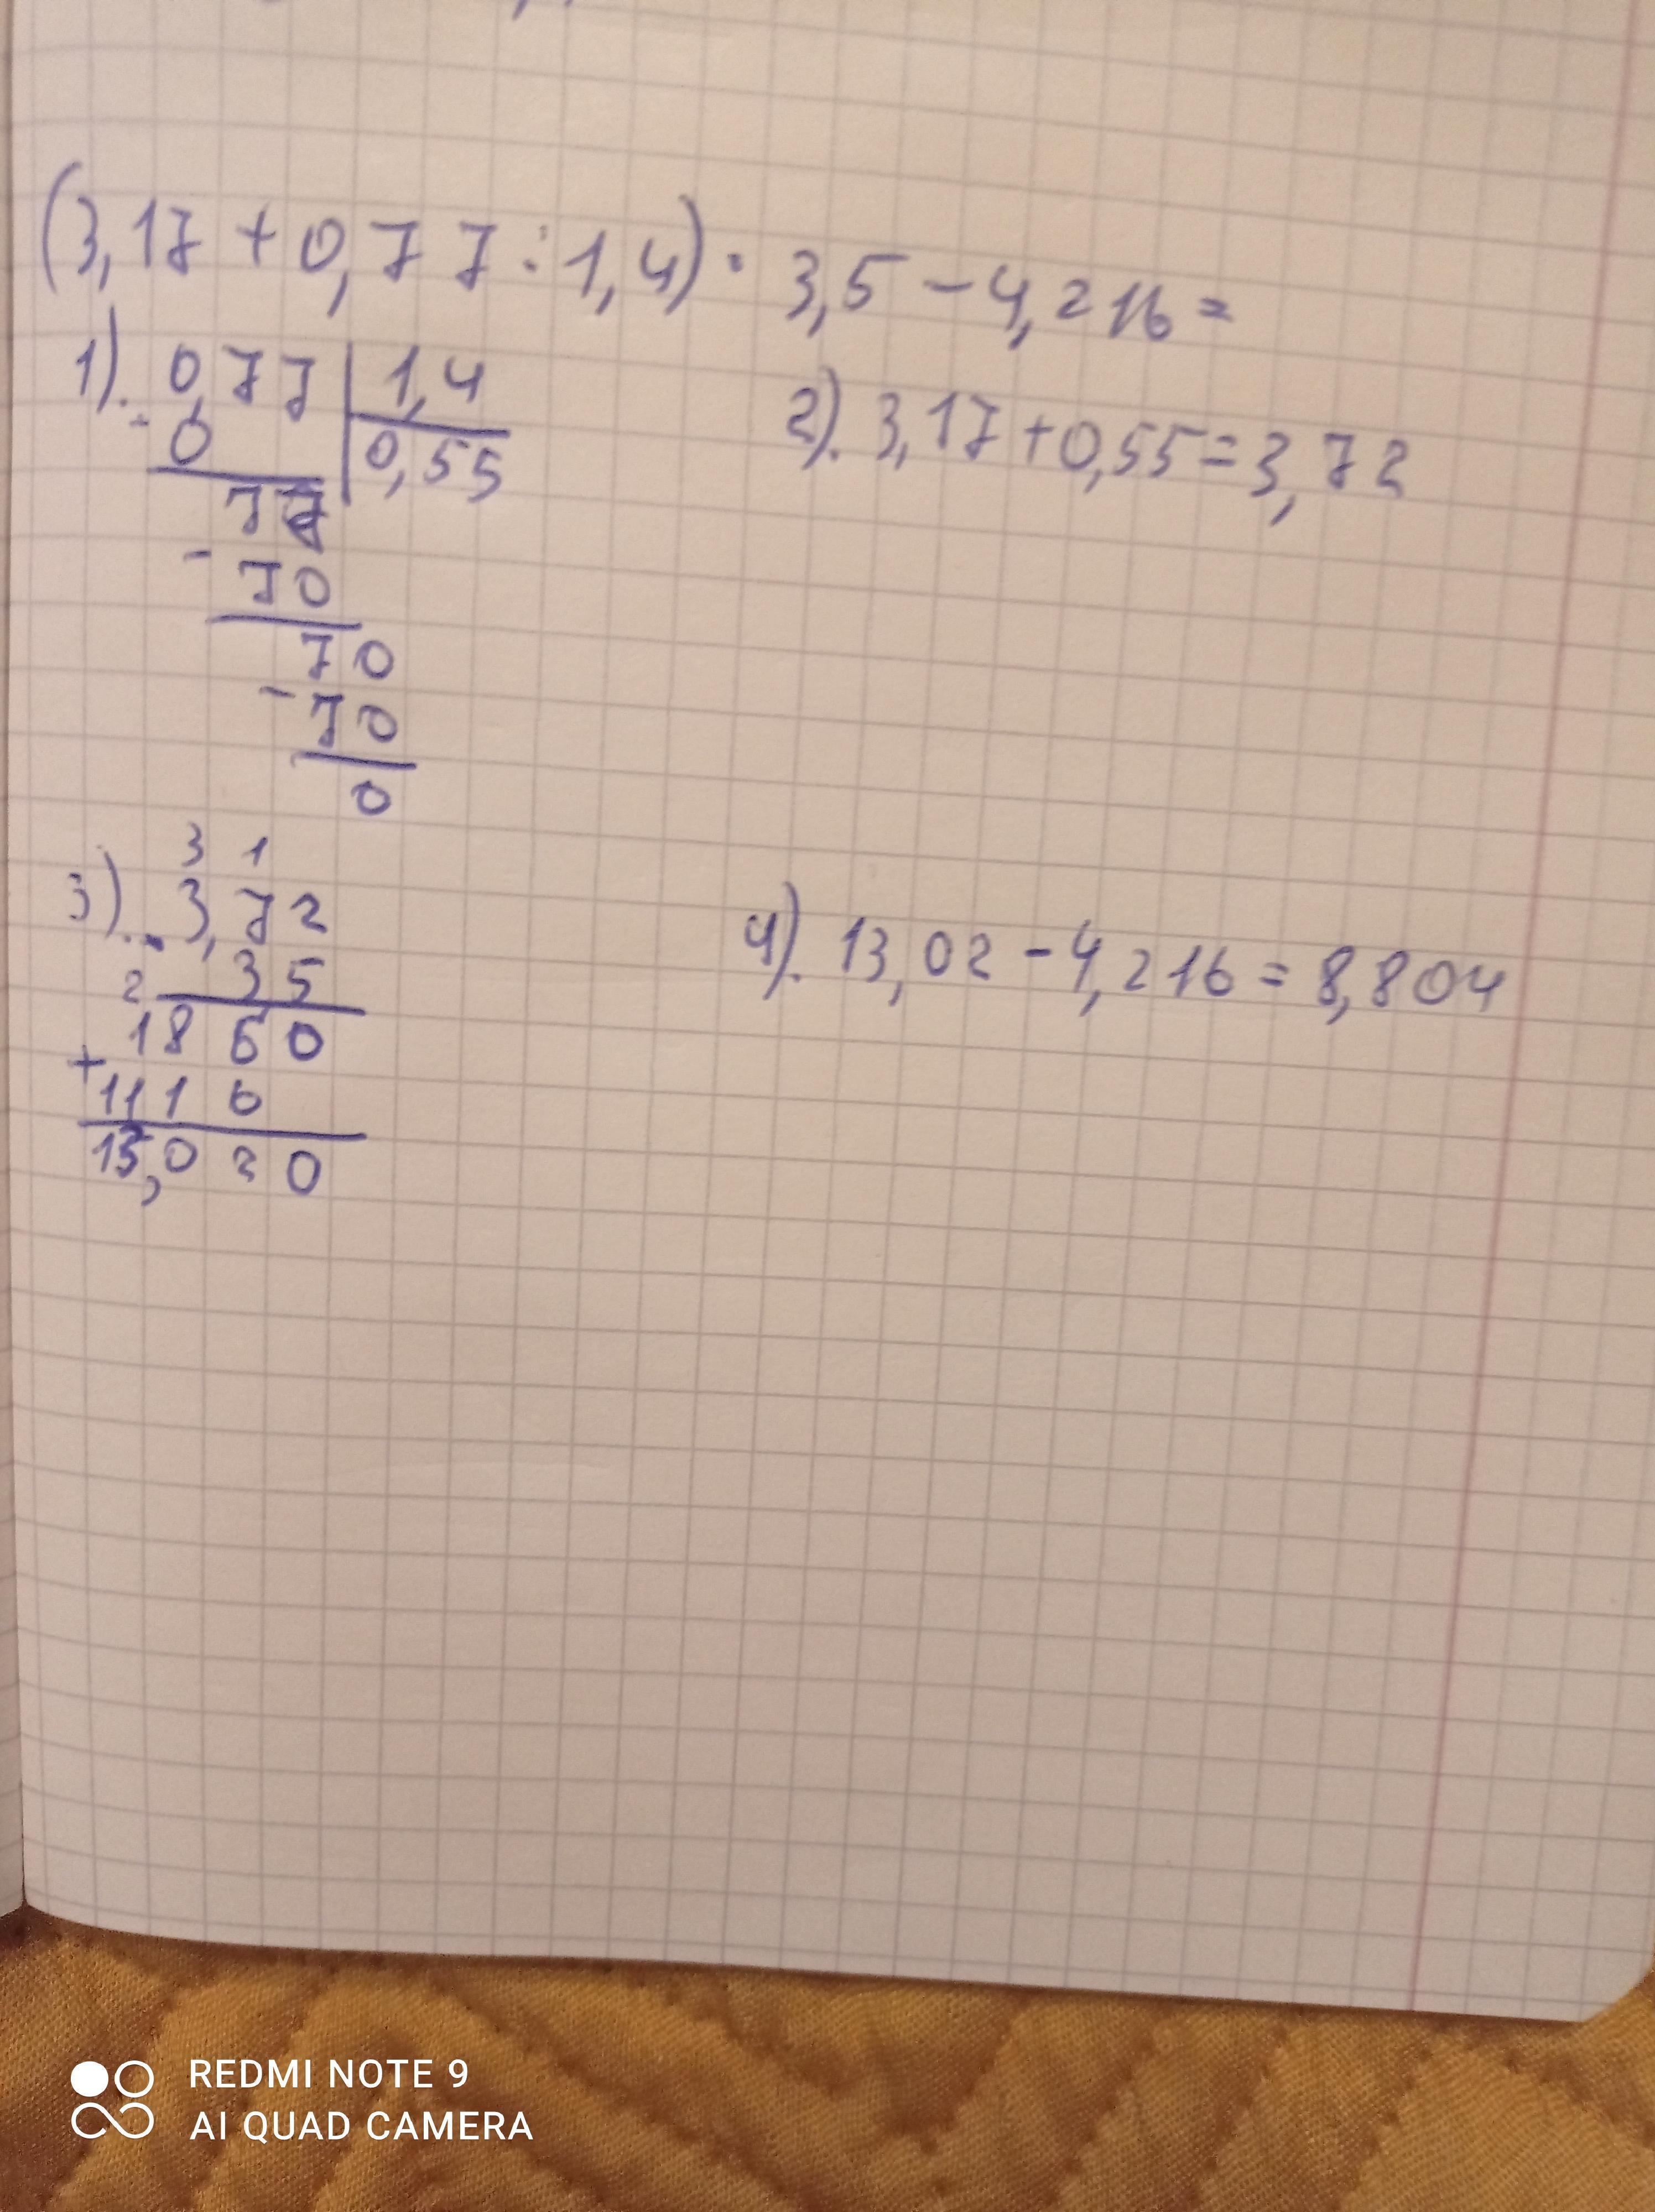 (3,17 + 0,77 : 1,4) · 3,5 - 4,216 =
1). 0,77 | 1,4
- 0 | 0,55
77
- 70
70
- 70
0
2). 3,17 + 0,55 = 3,72
3 1
3). 3,72
· 35
2
1860
+ 1116
13,020
4). 13,02 - 4,216 = 8,804
REDMI NOTE 9
AI QUAD CAMERA